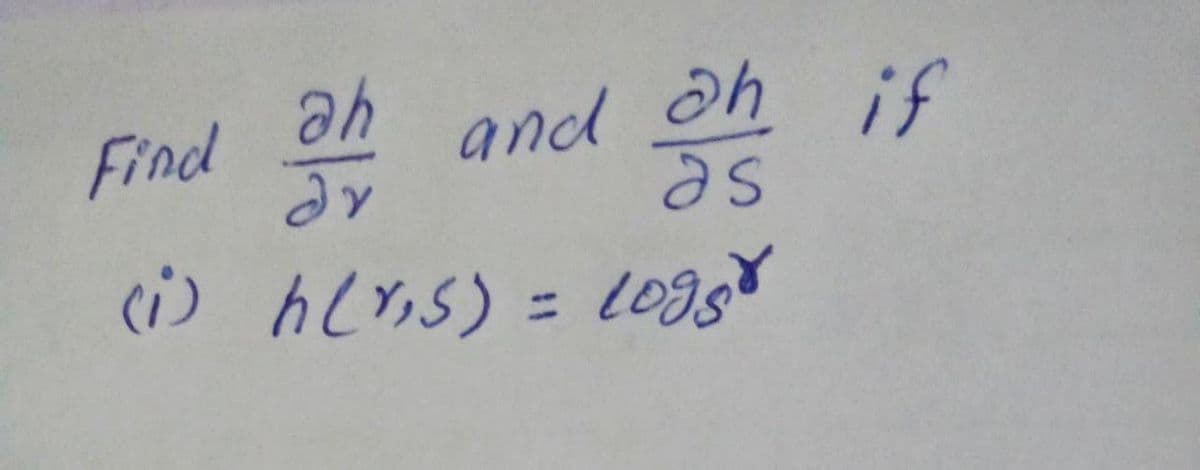 Find ∂h/∂r and ∂h/∂s if
(i) h(r,s) = log_s^r